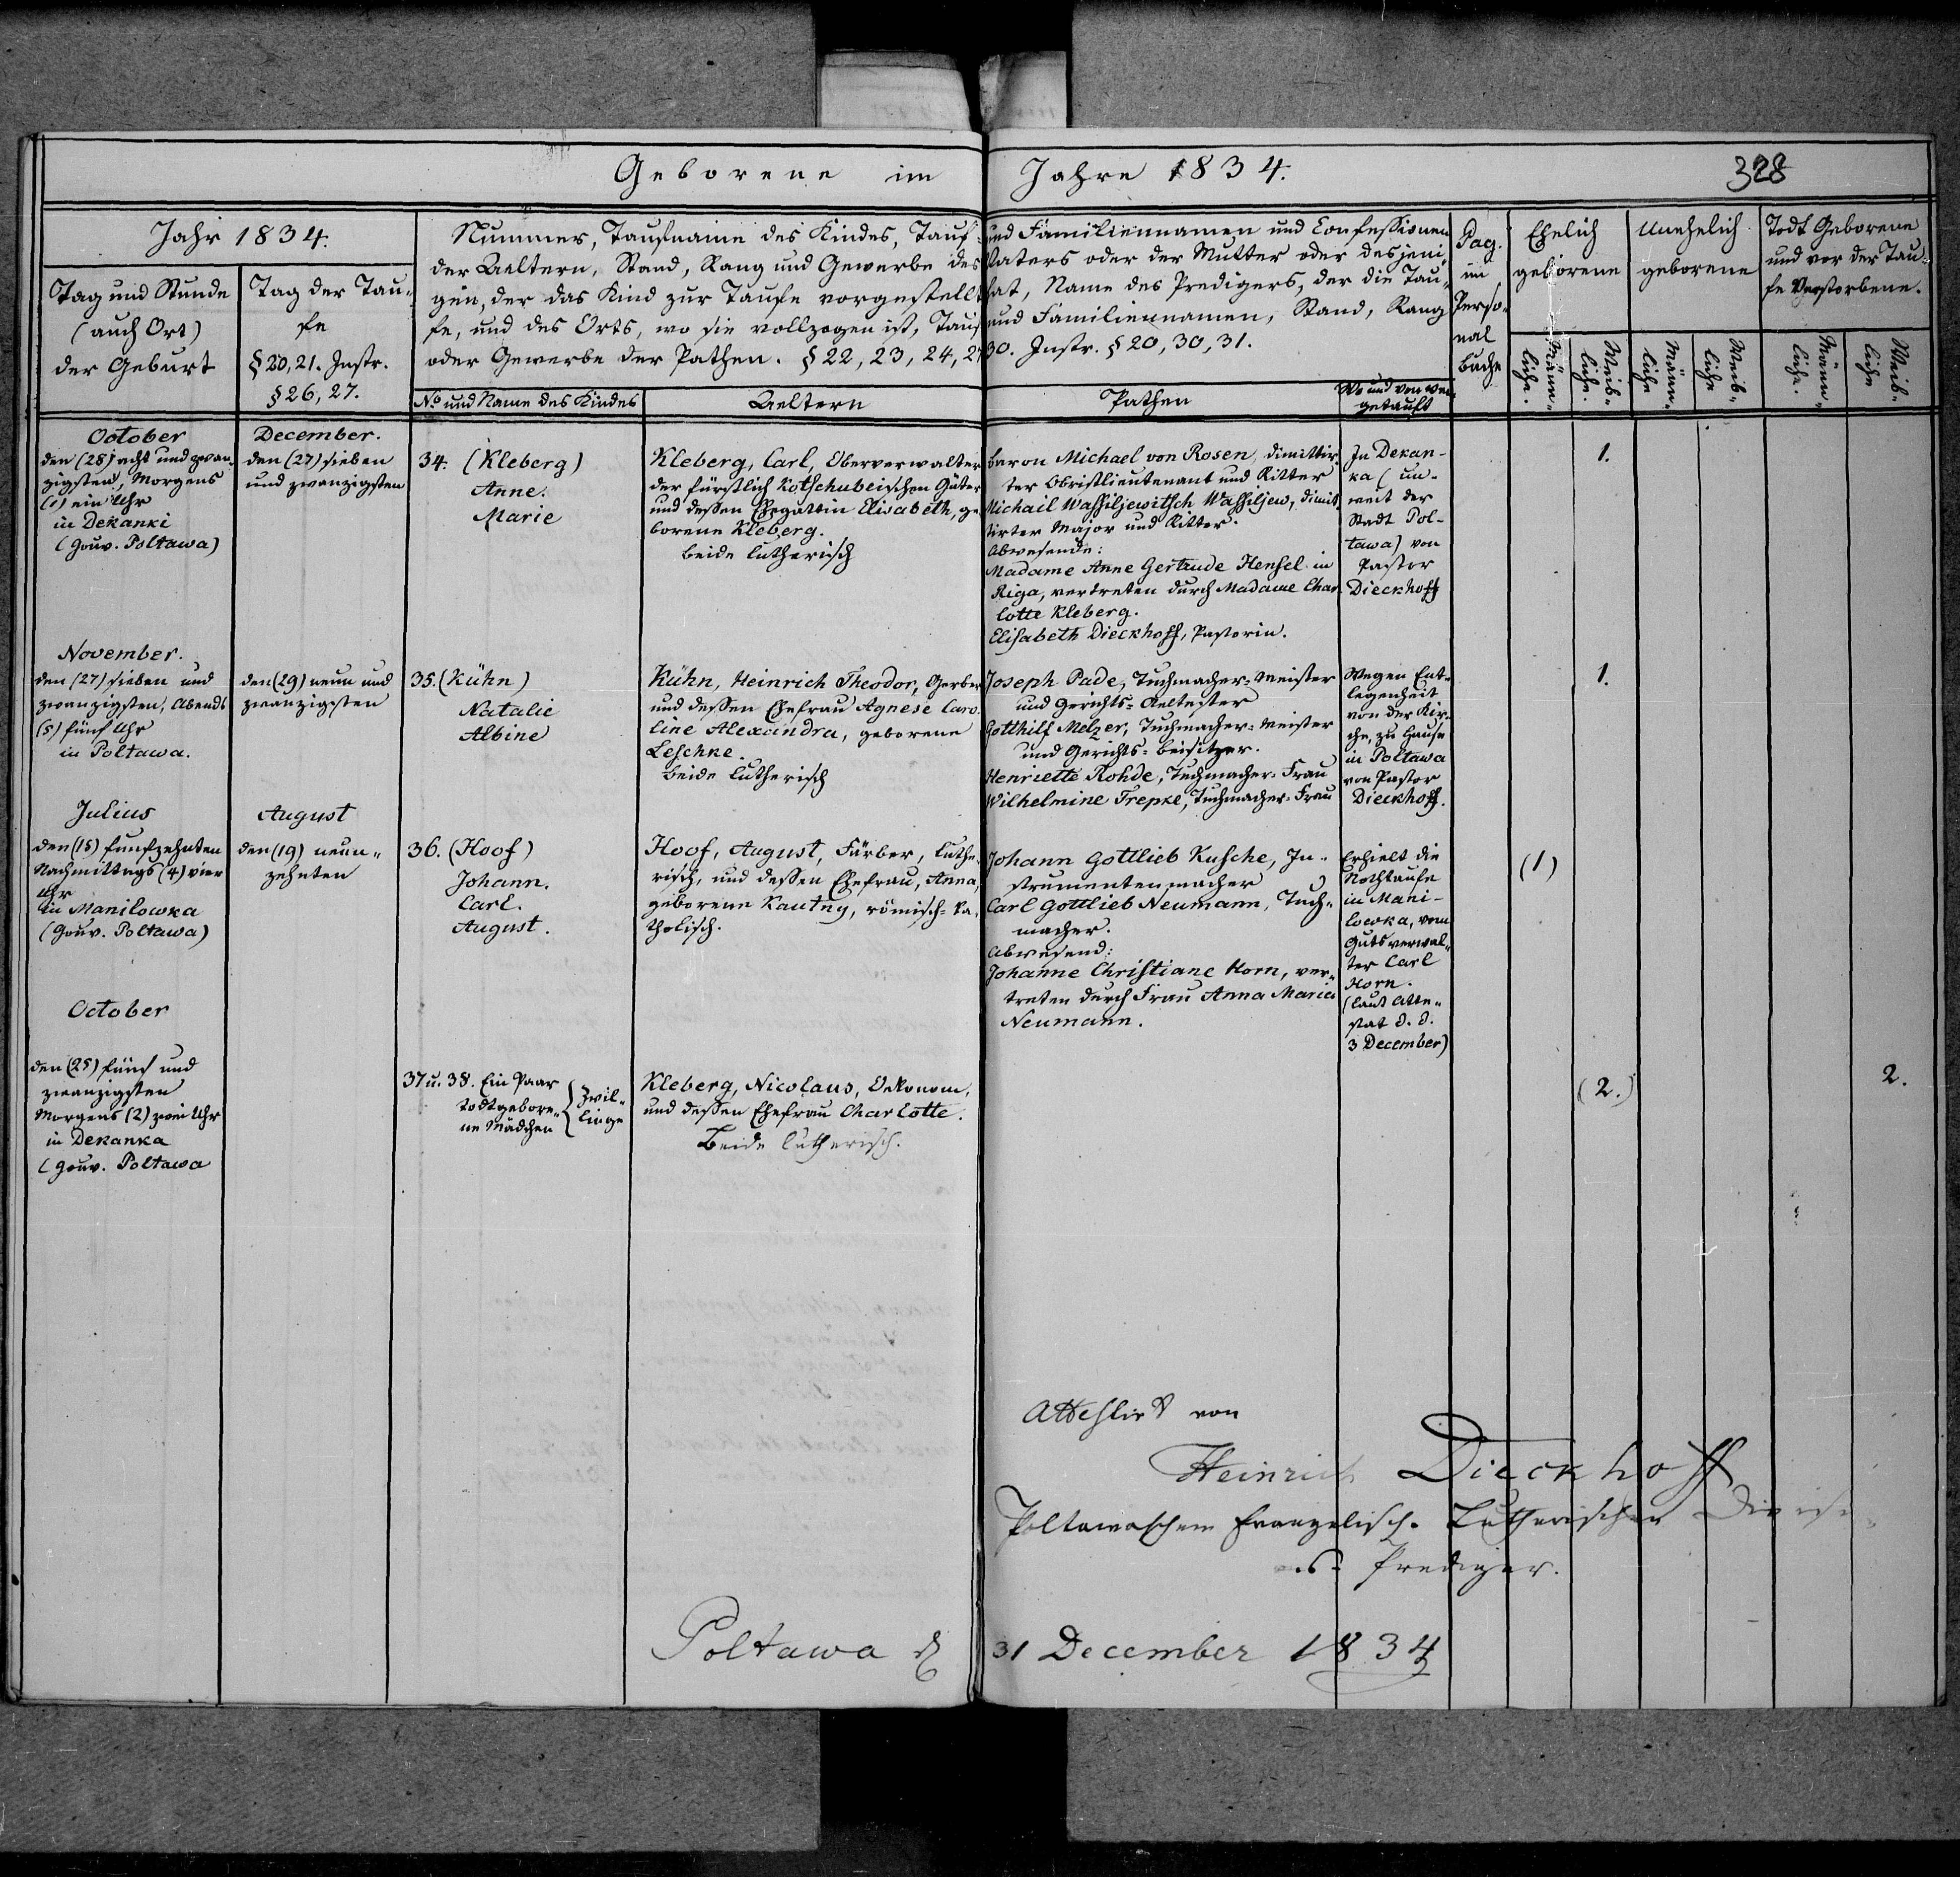 Geborene im Jahre 1834.
328
Jahr 1834.
Tag und Stunde
(auch Ort)
der Geburt
Tag der Tau-
fe
§ 20, 21. Instr.
§ 26, 27.
Nummer, Taufname des Kindes, Tauf- und Familiennamen und Confessionen
der Aeltern, Stand, Rang und Gewerbe des Vaters oder der Mutter oder desjeni-
gen, der das Kind zur Taufe vorgestellt hat, Name des Predigers, der die Tau-
fe, und des Orts, wo sie vollzogen ist, Tauf und Familiennamen, Stand, Rang
oder Gewerbe der Pathen. § 22, 23, 24, 27 30. Instr. § 20, 30, 31.
No und Name des Kindes
Aeltern
Pathen
Wo und von wem
getauft
Pag.
im
Perso-
nal
buche
Ehelich
geborene
Unehelich
geborene
Todt Geborene
und vor der Tau-
fe Verstorbene.
Männ-
liche.
Weib-
liche.
Männ-
liche
Weib-
liche
Männ-
liche.
Weib-
liche
October
den (28) acht und zwan-
zigsten, Morgens
(1) ein Uhr
in Dekanki
(Gouv. Poltawa)
December.
den (27) sieben
und zwanzigsten
34. (Kleberg)
Anne.
Marie
Kleberg, Carl, Oberverwalter
der fürstlich Kotschubeischen Güter
und dessen Ehegattin Elisabeth, ge
borene Kleberg.
beide lutherisch
Baron Michael von Rosen, dimittir-
ter Obristlieutenant und Ritter
Michail Wassiljewitsch Wassiljew, dimit
tirter Major und Ritter.
Abwesende:
Madame Anne Gertrude Hensel in
Riga, vertreten durch Madame Char
lotte Kleberg.
Elisabeth Dieckhoff, Pastorin.
In Dekan-
ka (un-
weit der
Stadt Pol-
tawa) von
Pastor
Dieckhoff
1.
November.
den (27) sieben und
zwanzigsten, Abends
(5) fünf Uhr
in Poltawa.
den (29) neun und
zwanzigsten
35. (Kühn)
Natalie
Albine
Kühn, Heinrich Theodor, Gerber
und dessen Ehefrau Agnese Caro-
line Alexandra, geborene
Leschke.
beide lutherisch
Joseph Pade, Tuchmacher-Meister
und Gerichts-Aeltester
Gotthilf Melzer, Tuchmacher-Meister
und Gerichts-beisitzer.
Henriette Rohde, Tuchmacher-Frau
Wilhelmine Trepke, Tuchmacher-Frau
Wegen Ent-
legenheit
von der Kir-
che, zu Hause
in Poltawa
von Pastor
Dieckhoff.
1.
Julius
den (15) funfzehnten
Nachmittags (4) vier
Uhr
in Manilowka
(Gouv. Poltawa)
August
den (19) neun-
zehnten
36. (Hoof)
Johann.
Carl.
August.
Hoof, August, Färber, luthe-
risch, und dessen Ehefrau, Anna,
geborene Kautny, römisch-ka-
tholisch.
Johann Gottlieb Kusche, In-
strumentenmacher
Carl Gottlieb Neumann, Tuch-
macher.
Abwesend:
Johanne Christiane Horn, ver-
treten durch Frau Anna Maria
Neumann.
Erhielt die
Nothtaufe
in Mani-
lowka, vom
Gutsverwal-
ter Carl
Horn.
(laut Atte-
stat d. d.
3 December)
(1)
October
den (25) fünf und
zwanzigsten
Morgens (2) zwei Uhr
in Dekanka
(Gouv. Poltawa
37 u. 38. Ein Paar
todtgebore-
ne Mädchen
Zwil-
linge
Kleberg, Nicolaus, Oekonom,
und dessen Ehefrau Charlotte.
Beide lutherisch.
(2.)
2.
Attestirt von
Heinrich Dieckhoff
Poltawaschem Evangelisch-Lutherischen Divisi-
ons-Prediger.
Poltawa d 31 December 1834